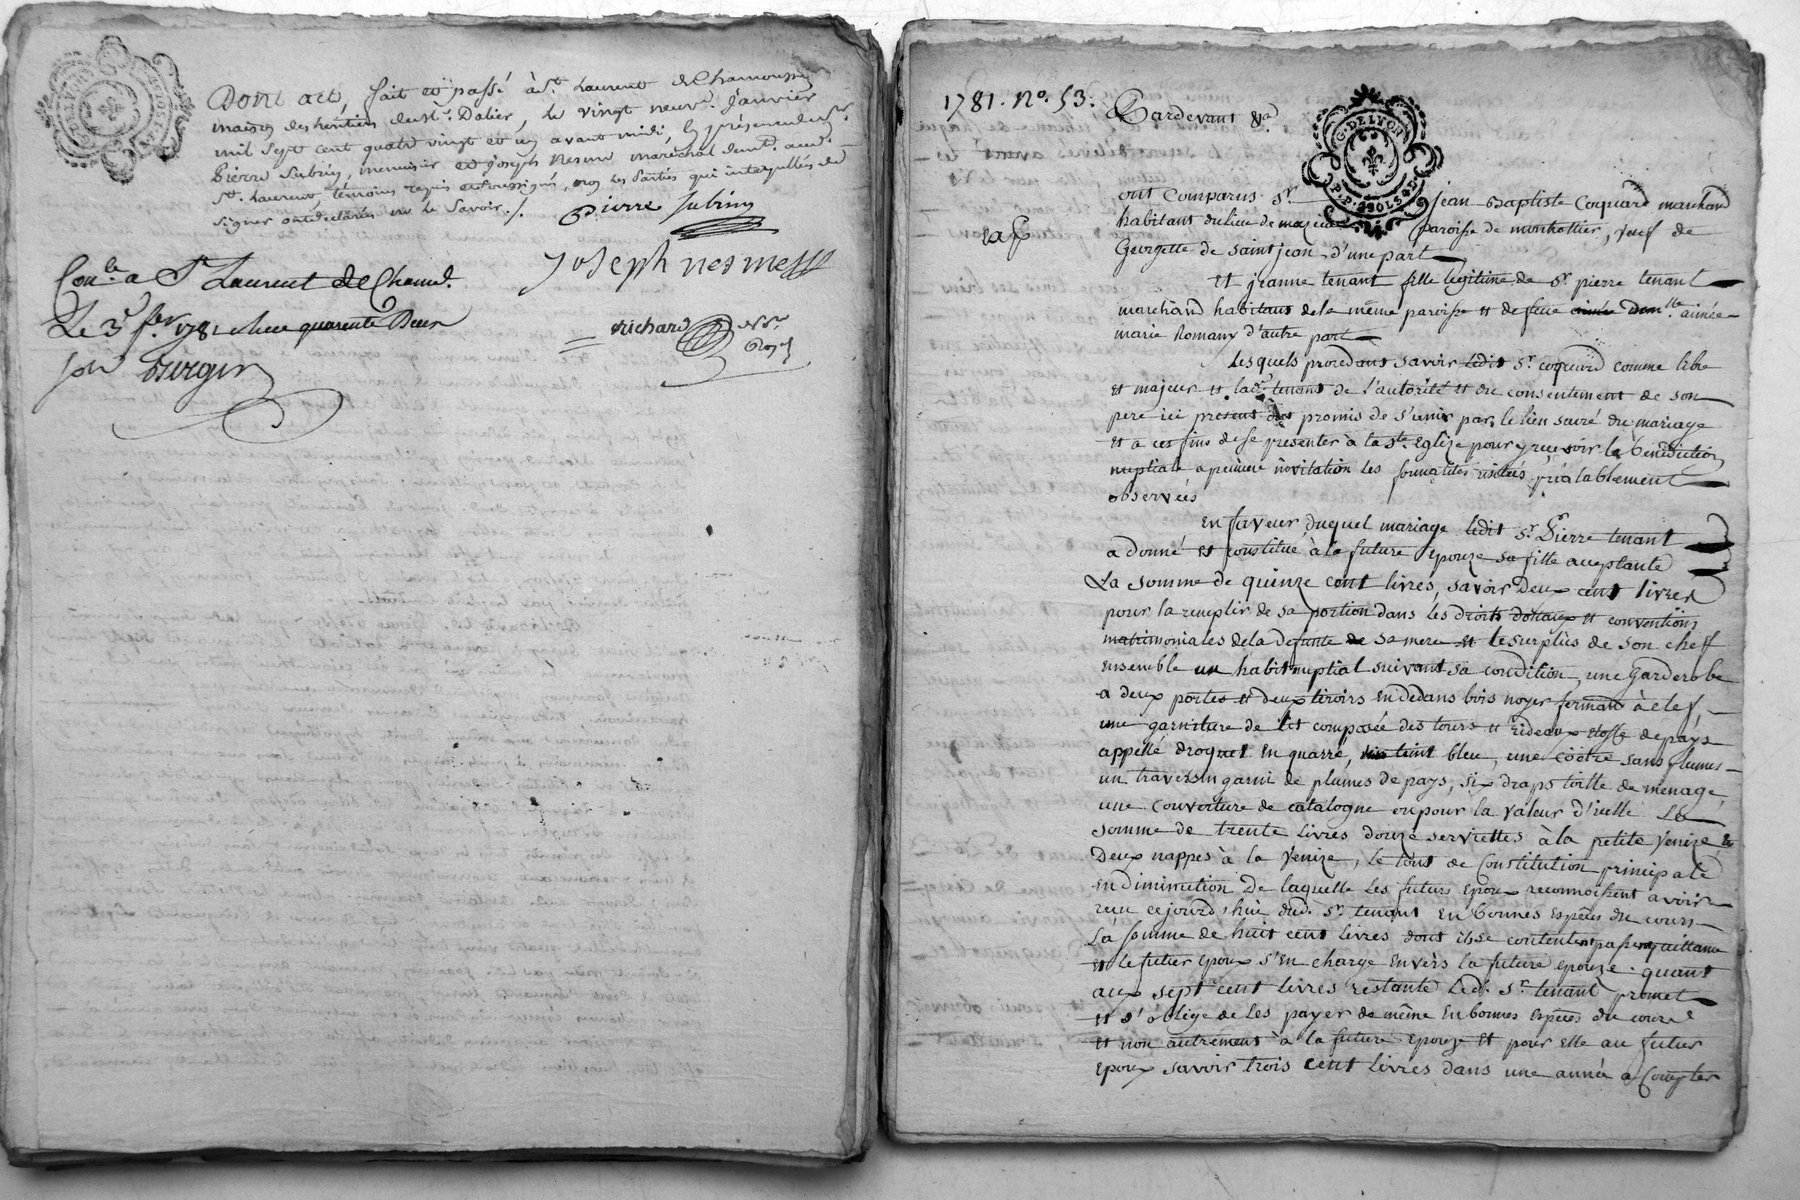 Dont act, fait et passé à St. Laurent de Chamousset
maison des hentiers du Sr. Dalier, le vingt neuv. Janvier
mil sept cent quatre vingt et un avant midi, En présence de Sr.
Pierre Subrin, menuisier et joseph Nesme maréchal demt. aud.
St. Laurent, témoins requis et soussignés, non les Parties qui interpellés de
signer ont déclarés ne le Savoir ./.
Pierre Subrin
Joseph nesme
richard
Conlé a St Laurent de Chamd.
Le 3e fer. 1781 quarente Deux
G. DE LYON
1781. No. 53.
Pardevant &a
ont Comparus Sr. Jean Baptiste Coquard marchand
habitant du lieu de paroisse de montrottier, veuf de
Georgette de saint jean d'une part
Et jeanne tenant fille legitime de Sr. pierre tenant
marchand habitant de la même paroisse et de feue aimée
marie Romany d'autre part
Lesquels procedant savoir ledit Sr. coquard comme libre
et majeur et lade. tenant de l'autorité et du consentement de son
pere ici present ont promis de s'unir par le lien sacré du mariage
et a ces fins de se presenter à la Ste. Eglize pour y recevoir la Benediction
nuptiale a premiere invitation les formalités préalablement
observées
En faveur duquel mariage ledit Sr. Pierre tenant
a donné et constitué à la future Epouze sa fille acceptante
La somme de quinze cent livres, savoir Deux cent livres
pour la remplir de sa portion dans les droits dotaux et conventions
matrimoniales de la defunte sa mere et le surplus de son chef
Ensemble un habit nuptial suivant sa condition, une Garderobe
a deux portes et deux tiroirs en dedans bois noyer fermant à clef,
une garniture de lit composée des tours et rideaux etoffe de pays
appellé droguet En quarré, teint bleu, une Coëtre sans plumes
un traversin garni de plumes de pays, six draps toille de menage,
une couverture de catalogne ou pour la valeur d'icelle La
somme de trente Livres douze serviettes à la petite venize &
Deux nappes à la Venize, le tout de Constitution principale
En Diminution de laquelle Les futurs Epoux reconnoissent avoir
reçu cejourd'hui dud. Sr. tenant En bonnes Espèces du cours
La somme de huit cent livres dont ils se contentent passent quittance
et le futur Epoux s'en charge Envèrs la future Epouze. quant
aux sept cent livres restante led. Sr. tenant promet
et s'oblige de les payer de même En bonnes Espèces du cours
et non autrement à la future Epouze et pour Elle au futur
Epoux savoir trois cent livres dans une année a Compter